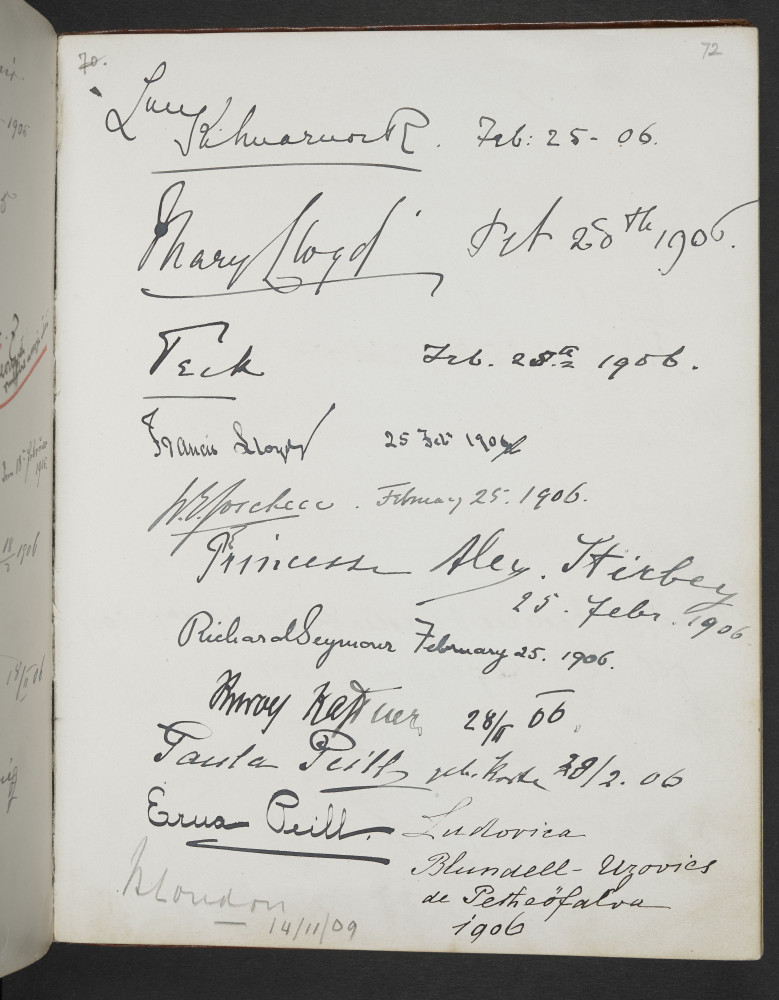 70. 72
Feb: 25 - 06.
Mary Lloyd Feb 28th 1906.
Teck Feb. 28th 1906.
Francis Lloyd 25 Feb 1906
February 25. 1906.
Princesse Alex. Stirbey
25. Febr. 1906
Richard Seymour February 25. 1906.
28/II 06.
Paula Peill geb. 28/2. 06
Erna Peill. Ludovica
Blundell-Uzovics
de Petheöfalva
1906
London
14/11/09